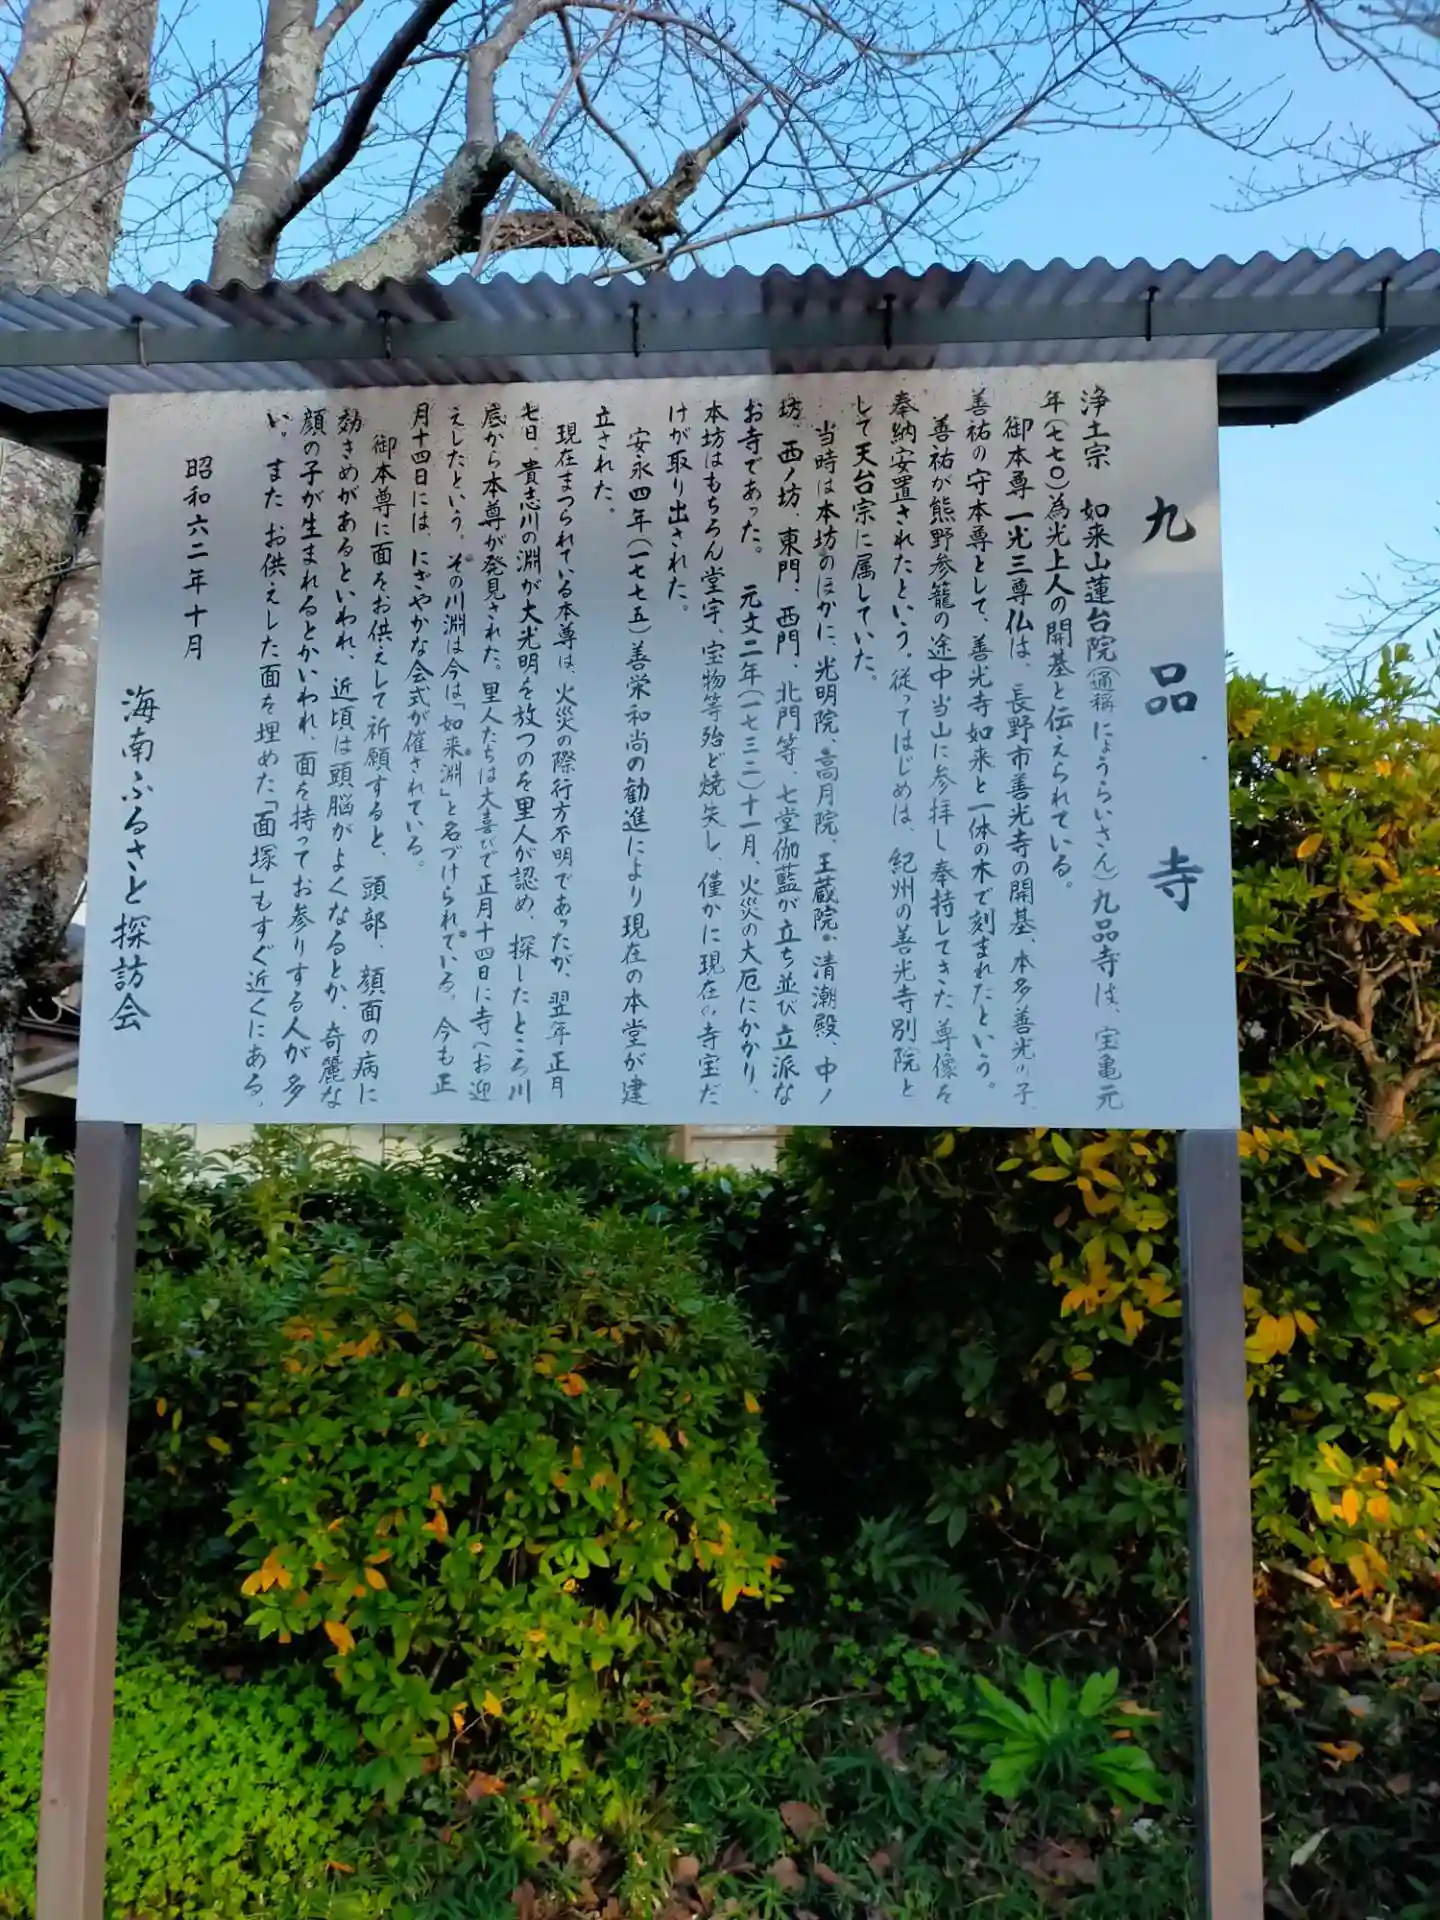 九品寺
浄土宗 如来山蓮台院(通称 にょうらいさん)九品寺は、宝亀元
年(七七〇)為光上人の開基と伝えられている。
御本尊 一光三尊仏は、長野市善光寺の開基、本多善光の子、
善祐の守本尊として、善光寺如来と一体の木で刻まれたという。
善祐が熊野参籠の途中当山に参拝し奉持してきた尊像を
奉納安置されたという。従ってはじめは、紀州の善光寺別院と
して天台宗に属していた。
当時は本坊のほかに、光明院、高月院、王蔵院、清潮殿、中ノ
坊、西ノ坊、東門、西門、北門等、七堂伽藍が立ち並び立派な
お寺であった。 元文二年(一七三二)十一月、火災の大厄にかかり、
本坊はもちろん堂宇、宝物等殆ど焼失し、僅かに現在の寺宝だ
けが取り出された。
安永四年(一七七五)善栄和尚の勧進により現在の本堂が建
立された。
現在まつられている本尊は、火災の際行方不明であったが、翌年正月
七日、貴志川の淵が大光明を放つのを里人が認め、探したところ川
底から本尊が発見された。里人たちは大喜びで正月十四日に寺へお迎
えしたという。その川淵は今は「如来淵」と名づけられている。今も正
月十四日には、にぎやかな会式が催されている。
御本尊に面をお供えして祈願すると、頭部、顔面の病に
効きめがあるといわれ、近頃は頭脳がよくなるとか、奇麗な
顔の子が生まれるとかいわれ、面を持ってお参りする人が多
い。また お供えした面を埋めた「面塚」もすぐ近くにある。
昭和六二年十月
海南ふるさと探訪会